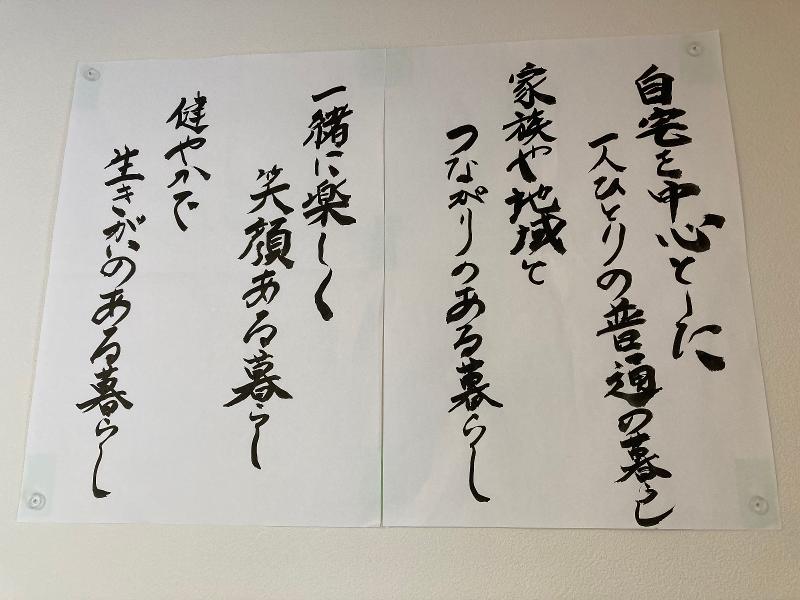 自宅を中心とした
一人ひとりの普通の暮らし
家族や地域と
つながりのある暮らし
一緒に楽しく
笑顔ある暮らし
健やかで
生きがいのある暮らし